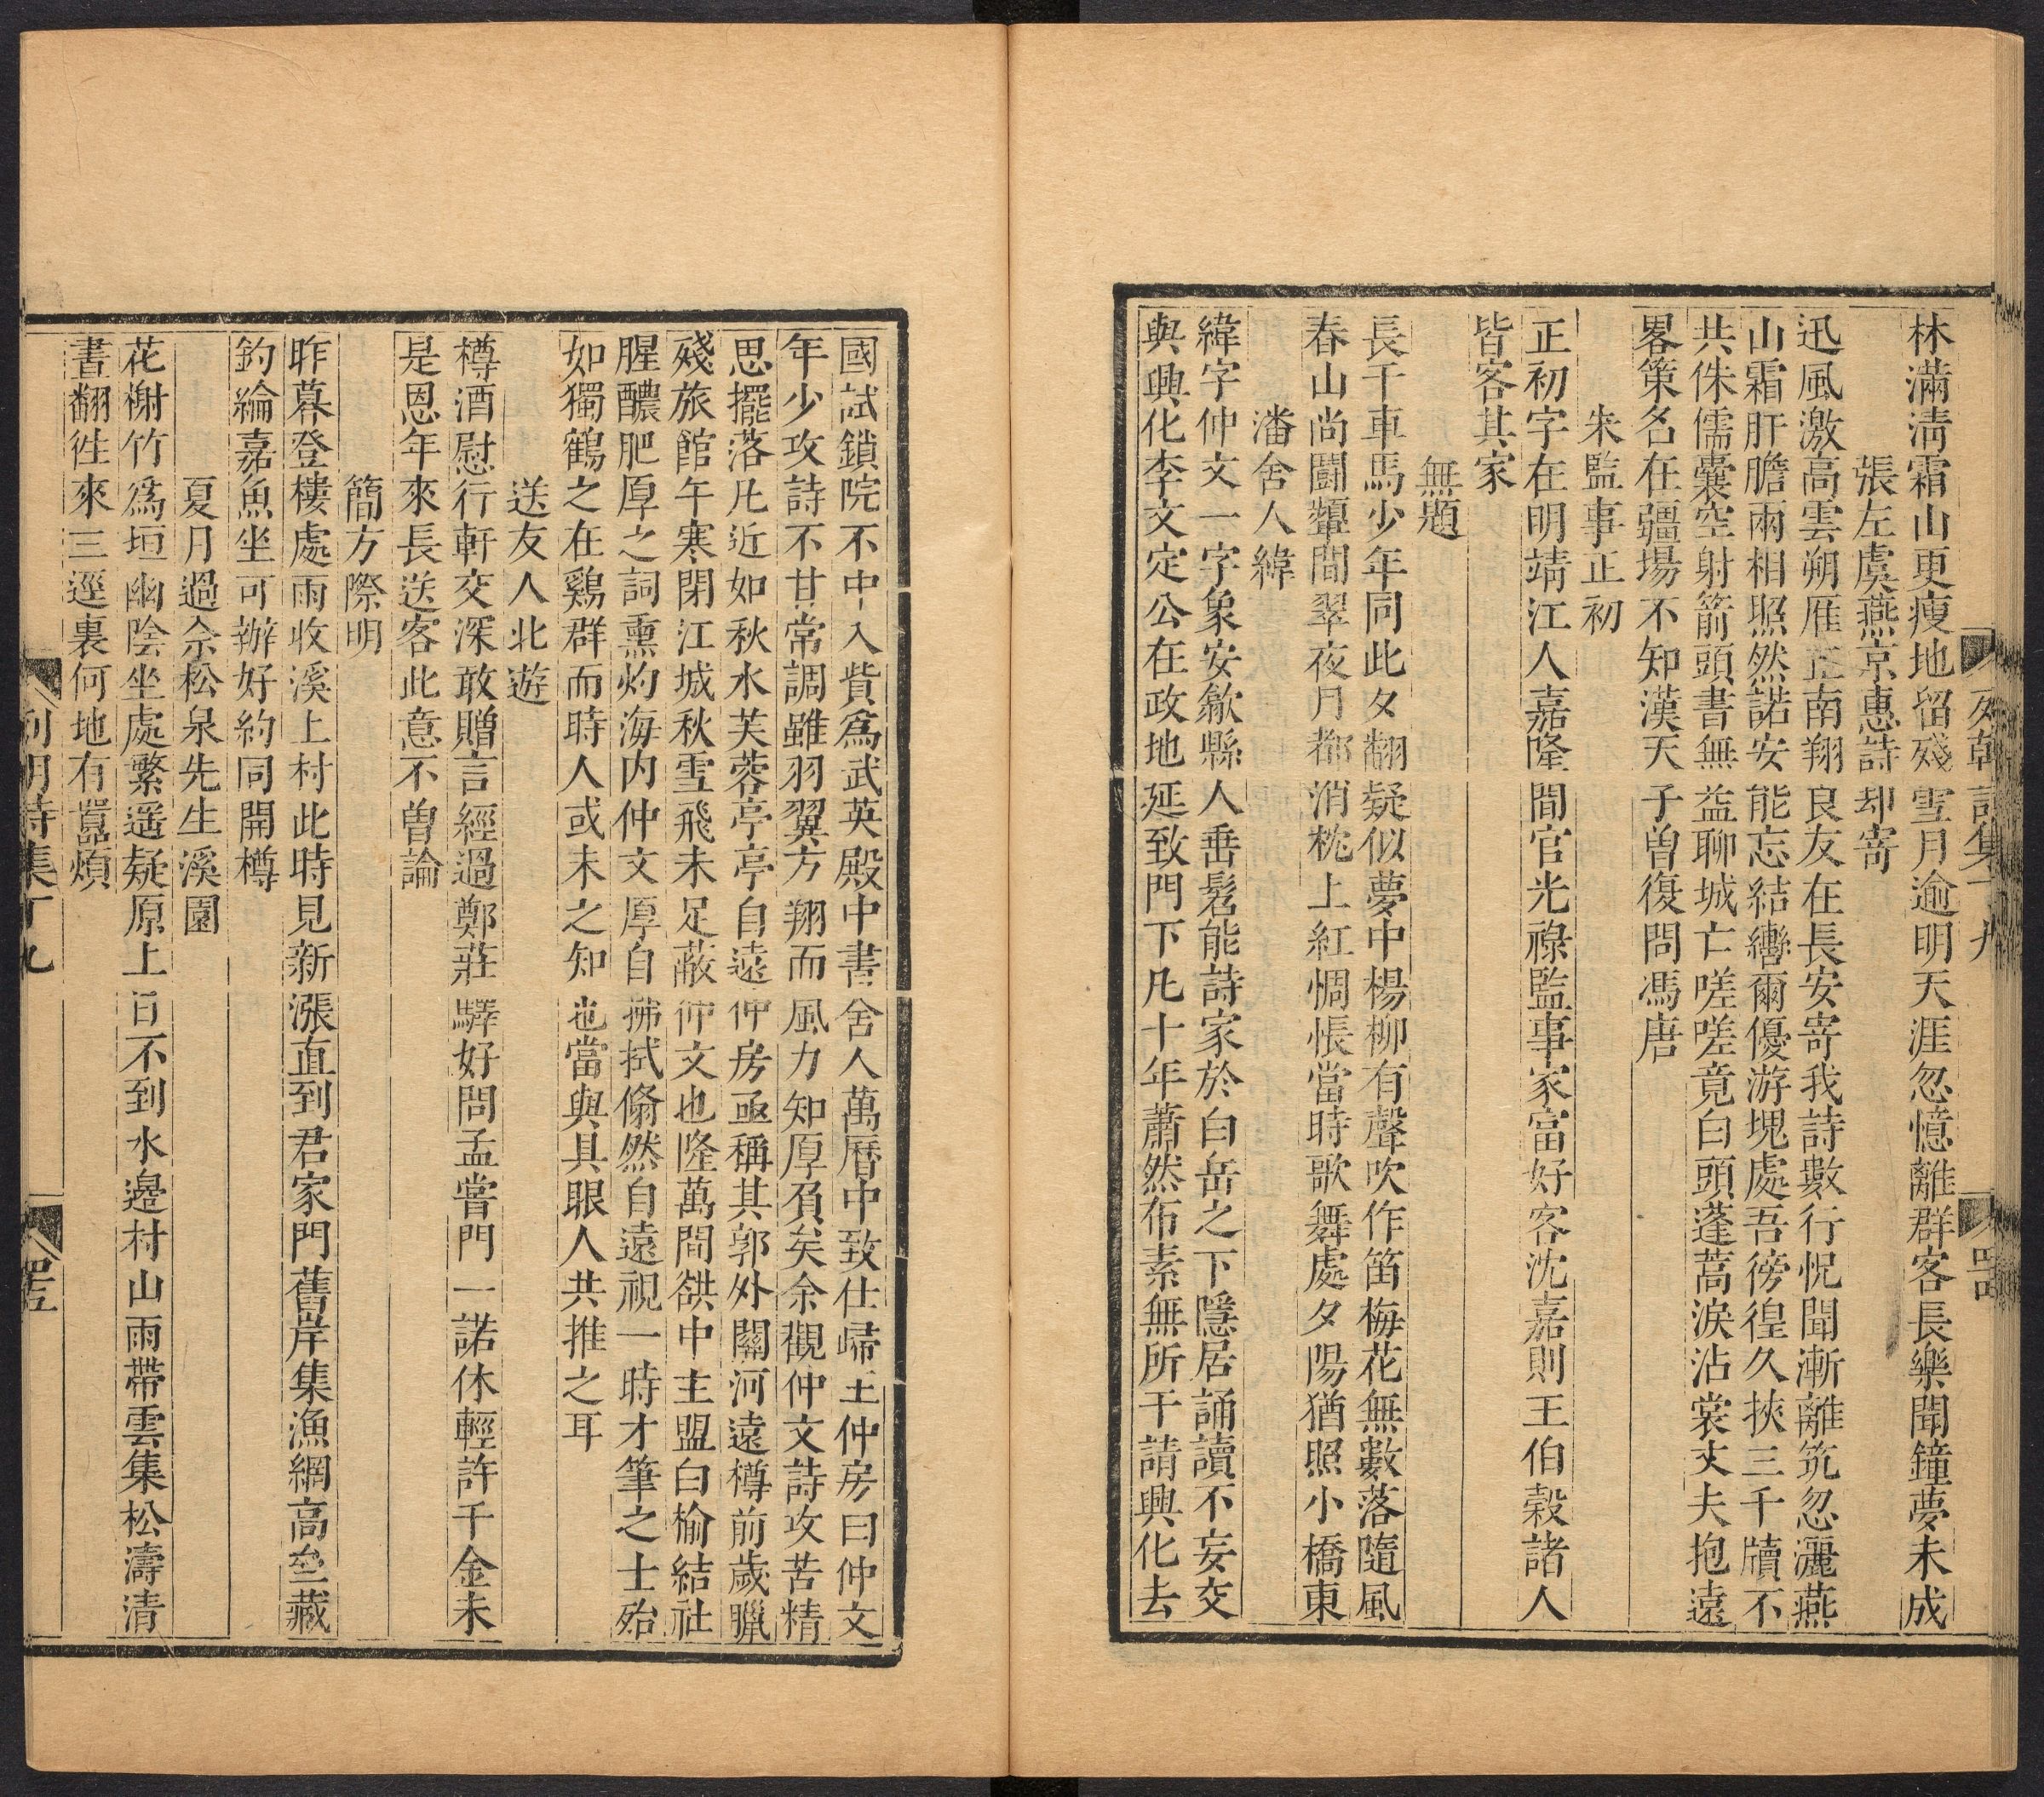 林滿淸霜山更瘦地留殘雪月逾明天涯忽憶離群客長樂聞鐘夢未成
張左虞燕京惠詩却寄
迅風激高雲朔雁正南翔良友在長安寄我詩數行怳聞漸離筑忽灑燕
山霜肝膽兩相照然諾安能忘結轡爾優游塊處吾徬徨久挾三千牘不
共侏儒囊空射箭頭書無益聊城亡嗟嗟竟白頭蓬蒿淚沾裳丈夫抱遠
畧策名在疆場不知漢天子曾復問馮唐
朱監事正初
正初字在明靖江人嘉隆間官光祿監事家富好客沈嘉則王伯榖諸人
皆客其家
無題
長干車馬少年同此夕翻疑似夢中楊柳有聲吹作笛梅花無數落隨風
春山尚鬬顰間翠夜月都消枕上紅惆悵當時歌舞處夕陽猶照小橋東
潘舍人緯
緯字仲文一字象安歙縣人垂髫能詩家於白岳之下隱居誦讀不妄交
與興化李文定公在政地延致門下凡十年蕭然布素無所干請興化去
列朝詩集丁九
四十四
國試鎖院不中入貲爲武英殿中書舍人萬曆中致仕歸王仲房曰仲文
年少攻詩不甘常調雖羽翼方翔而風力知厚負矣余觀仲文詩攻苦精
思擺落凡近如秋水芙蓉亭亭自遠仲房亟稱其郭外關河遠樽前歲臘
殘旅館午寒閉江城秋雪飛未足蔽仲文也隆萬間歙中主盟白榆結社
腥醲肥厚之詞熏灼海内仲文厚自拂拭翛然自遠視一時才筆之士殆
如獨鶴之在鷄群而時人或未之知也當與具眼人共推之耳
送友人北遊
樽酒慰行軒交深敢贈言經過鄭莊驛好問孟嘗門一諾休輕許千金未
是恩年來長送客此意不曾論
簡方際明
昨暮登樓處雨收溪上村此時見新漲直到君家門舊岸集漁網高垒藏
釣綸嘉魚坐可辦好約同開樽
夏月過佘松泉先生溪園
花榭竹爲垣幽陰坐處繁遥疑原上百不到水邊村山雨帶雲集松濤清
晝翻徃來三逕裏何地有囂煩
列朝詩集丁九
四十五